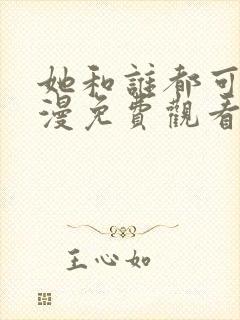 她和誰都可
漫免費觀看
王心如